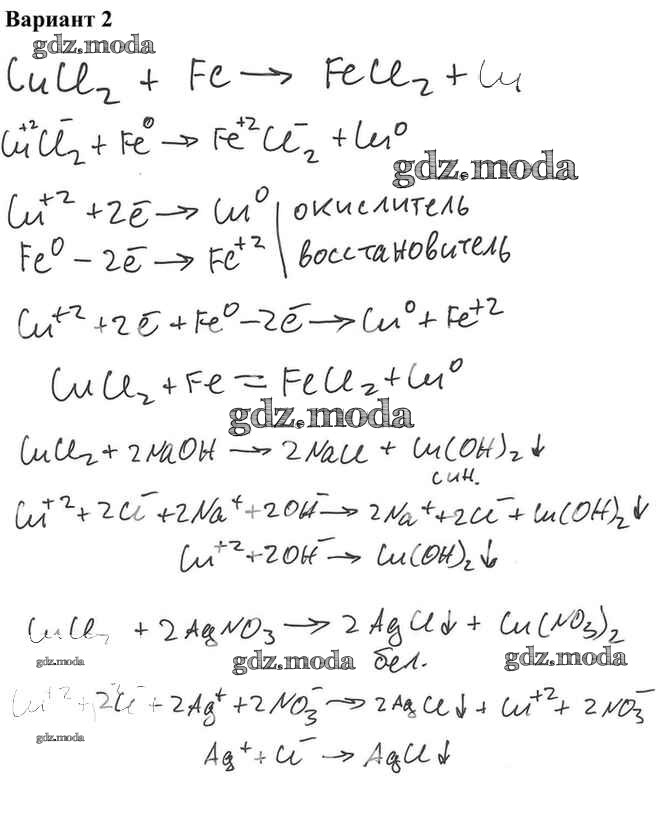 Вариант 2
gdz.moda
CuCl₂ + Fe → FeCl₂ + Cu
Cu⁺²Cl⁻₂ + Fe⁰ → Fe⁺²Cl⁻₂ + Cu⁰
gdz.moda
Cu⁺² + 2ē → Cu⁰ | окислитель
Fe⁰ – 2ē → Fe⁺² | восстановитель
Cu⁺² + 2ē + Fe⁰ – 2ē → Cu⁰ + Fe⁺²
CuCl₂ + Fe = FeCl₂ + Cu⁰
gdz.moda
CuCl₂ + 2NaOH → 2NaCl + Cu(OH)₂↓
син.
Cu⁺² + 2Cl⁻ + 2Na⁺ + 2OH⁻ → 2Na⁺ + 2Cl⁻ + Cu(OH)₂↓
Cu⁺² + 2OH⁻ → Cu(OH)₂↓
CuCl₂ + 2AgNO₃ → 2AgCl↓ + Cu(NO₃)₂
gdz.moda gdz.moda бел. gdz.moda
Cu⁺² + 2Cl⁻ + 2Ag⁺ + 2NO₃⁻ → 2AgCl↓ + Cu⁺² + 2NO₃⁻
gdz.moda
Ag⁺ + Cl⁻ → AgCl↓